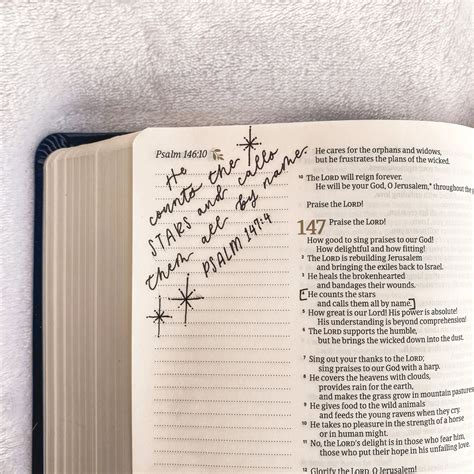 Psalm 146:10
He
counts the
STARS and calls
them all by name.
PSALM 147:4
He cares for the orphans and widows,
but he frustrates the plans of the wicked.
10 The LORD will reign forever.
He will be your God, O Jerusalem,* throughout the
PRAISE THE LORD!
147 Praise the LORD!
How good to sing praises to our God!
How delightful and how fitting!
2 The LORD is rebuilding Jerusalem
and bringing the exiles back to Israel.
3 He heals the brokenhearted
and bandages their wounds.
4 He counts the stars
and calls them all by name.
5 How great is our Lord! His power is absolute!
His understanding is beyond comprehension!
6 The LORD supports the humble,
but he brings the wicked down into the dust.
7 Sing out your thanks to the LORD;
sing praises to our God with a harp.
8 He covers the heavens with clouds,
provides rain for the earth,
and makes the grass grow in mountain pastures
9 He gives food to the wild animals
and feeds the young ravens when they cry.
10 He takes no pleasure in the strength of a horse
or in human might.
11 No, the LORD's delight is in those who fear him,
those who put their hope in his unfailing love.
12 Glorify the LORD, O Jerusalem!